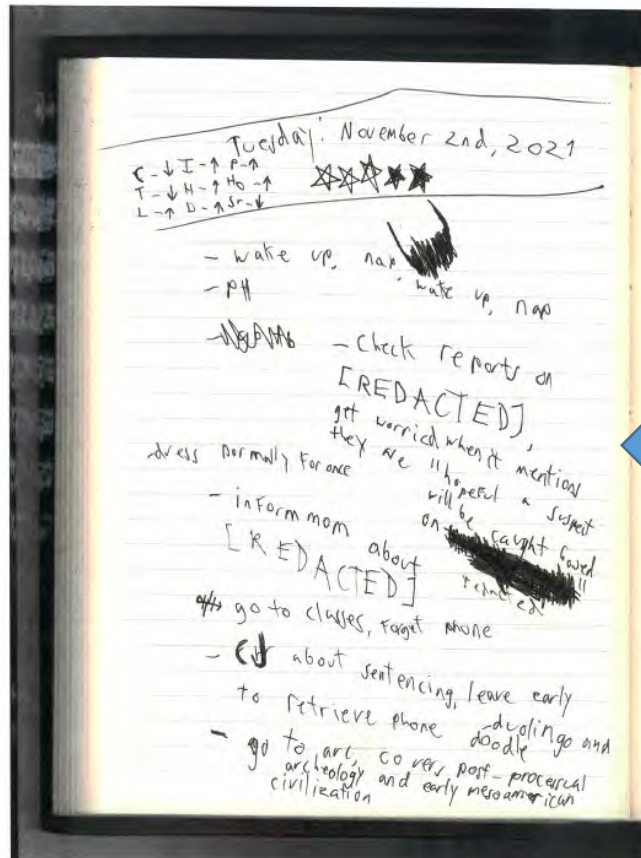 Tuesday: November 2nd, 2021
C-↓ I-↑ P-↑
T-↓ H-↑ Ho-↑
L-↑ D-↑ Sr-↓
- wake up, nap, wake up, nap
- PH
- Check reports on
[REDACTED],
get worried when it mentions
they are "hopeful a suspect
will be caught based
on
redacted"
dress normally for once
- inform mom about
[REDACTED]
go to classes, forget phone
- CJ about sentencing, leave early
to retrieve phone
- duolingo and
doodle
- go to arc, covers post-processual
archeology and early mesoamerican
civilization